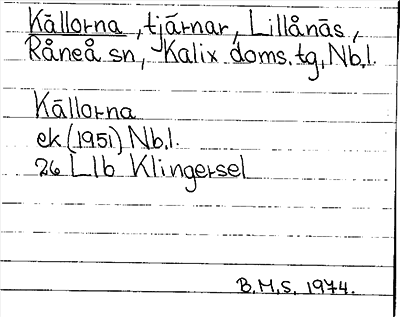 Källorna, tjärnar, Lillånäs,
Råneå sn, Kalix doms.tg, Nb.l.
Källorna
ek (1951) Nb.l.
26 Llb Klingersel
B.M.S. 1974.